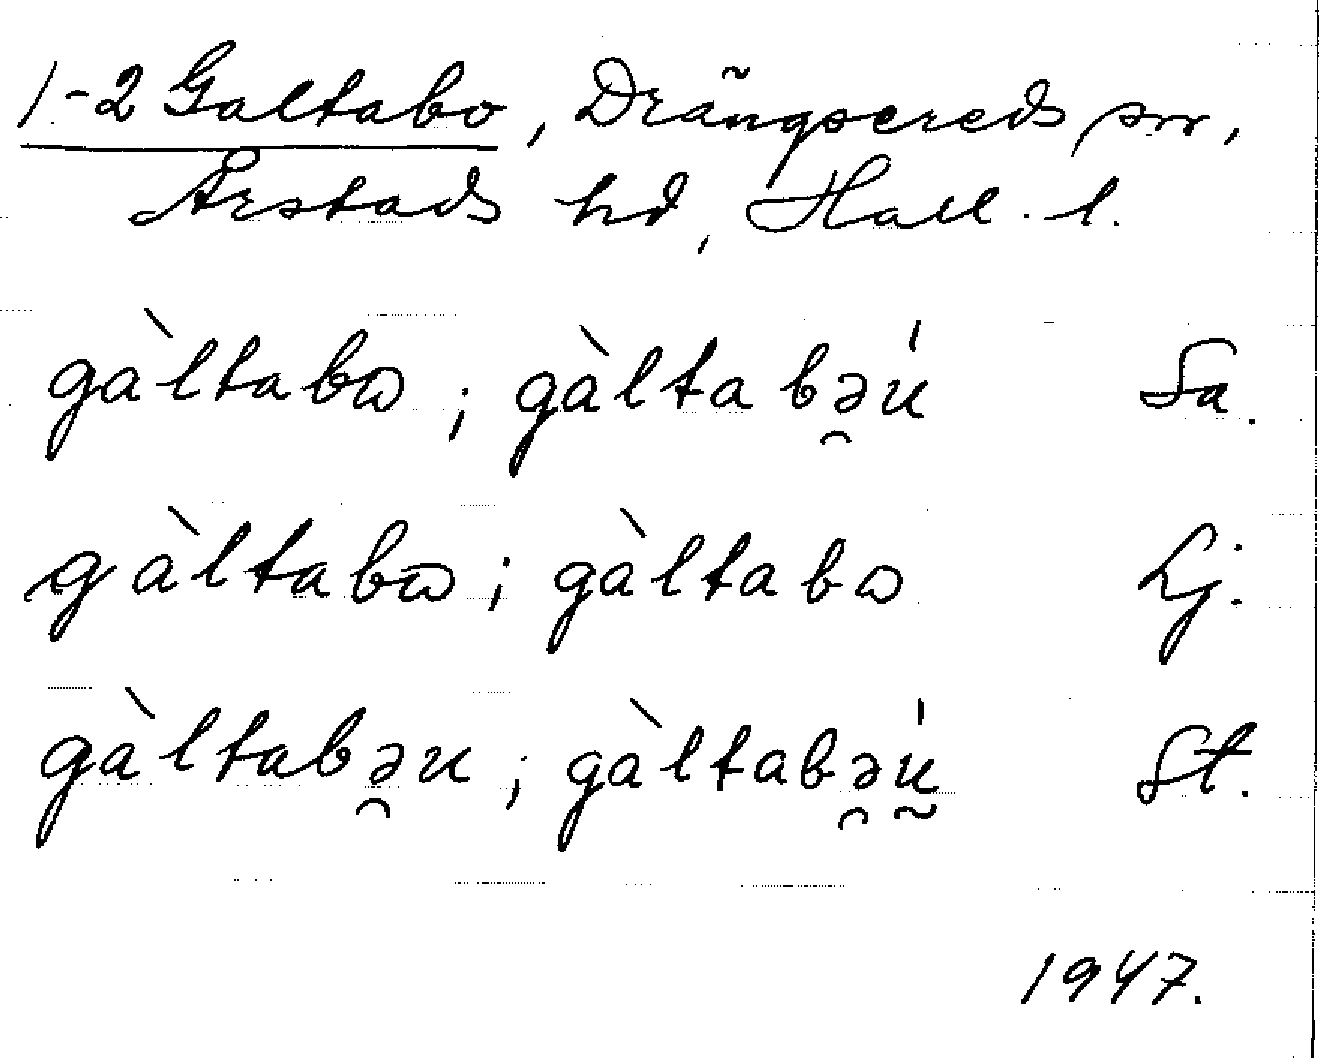 1-2 Galtabo, Drängsereds sn,
Årstads hd, Hall. l.
gàltabɷ; gàltabə̯ú Sa.
gàltabɷ; gàltabɷ Lj.
gàltabə̯u; gàltabə̯ṵ́ St.
1947.